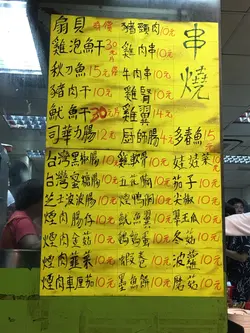 串燒
扇貝 時價 豬頸肉10元
雞泡魚干30元 雞肉串10元
秋刀魚15元 牛肉串10元
豬肉干10元 雞腎10元
魷魚干30元 雞翼14元
司華力腸12元 廚師腸4元 多春魚15元
台灣黑椒腸10元 雞軟骨10元 娃娃菜10元
台灣蜜糖腸10元 五花腩10元 茄子10元
芝士波波腸10元 煙鴨胸10元 尖椒10元
煙肉腸仔10元 魷魚翼10元 翠玉瓜10元
煙肉金菇10元 鵪鶉蛋10元 冬菇10元
煙肉韮菜10元 蝦春10元 菠蘿10元
煙肉車厘茄10元 墨魚餅10元 腸菇10元